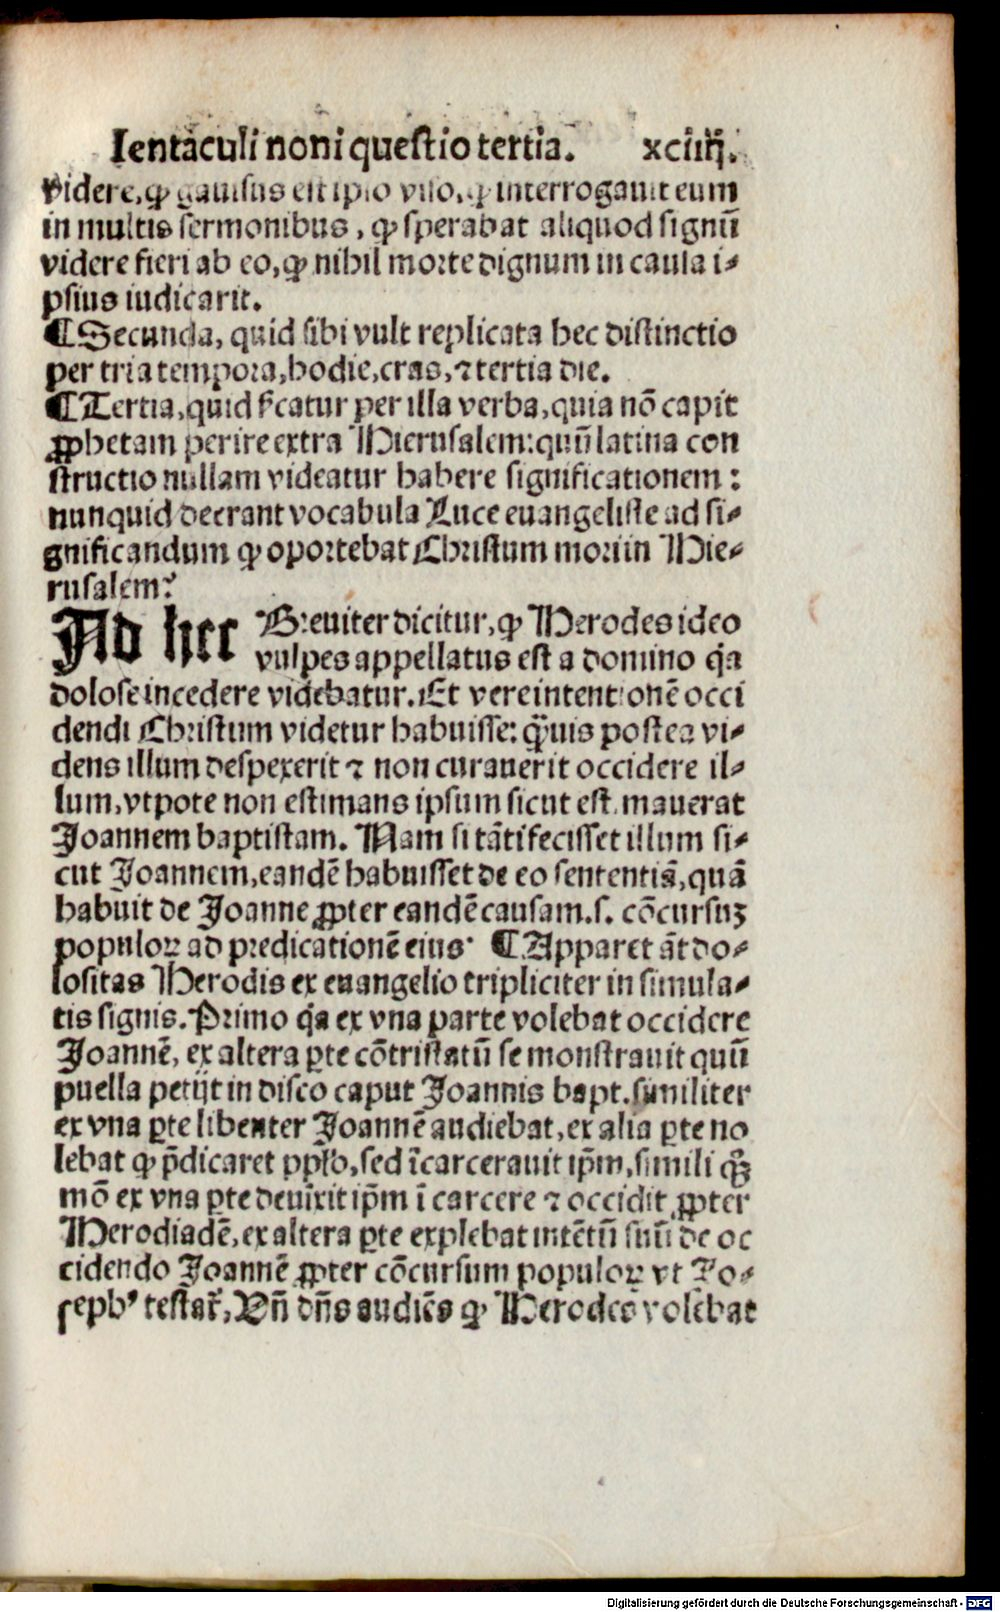 Ientaculi noni questio tertia. xciiij.
videre, ꝙ gauisus est ipso viso, ꝙ interrogauit eum
in multis sermonibus, ꝙ sperabat aliquod signū
videre fieri ab eo, ꝙ nihil morte dignum in causa i⸗
psius iudicarit.
¶ Secunda, quid sibi vult replicata hec distinctio
per tria tempora, hodie, cras, ⁊ tertia die.
¶ Tertia, quid ſ̄catur per illa verba, quia nō capit
ꝓphetam perire extra Hierusalem: quū latina con
structio nullam videatur habere significationem:
nunquid deerant vocabula Luce euangeliste ad si⸗
gnificandum ꝙ oportebat Christum mori in Hie⸗
rusalem?
Ad hec Breuiter dicitur, ꝙ Herodes ideo
vulpes appellatus est a domino q̄a
dolose incedere videbatur. Et vere intentionē occi
dendi Christum videtur habuisse: q̄uis postea vi⸗
dens illum despexerit ⁊ non curauerit occidere il⸗
lum, vtpote non estimans ipsum sicut estimauerat
Joannem baptistam. Nam si tāti fecisset illum si⸗
cut Joannem, eandē habuisset de eo sententiā, quā
habuit de Joanne ꝓpter eandē causam .s. cōcursuꝫ
populoꝝ ad predicationē eius. ¶ Apparet āt do⸗
lositas Herodis ex euangelio tripliciter in simula⸗
tis signis. Primo q̄a ex vna parte volebat occidere
Joannē, ex altera ꝑte cōtristatū se monstrauit quū
puella petijt in disco caput Joannis bapt. similiter
ex vna ꝑte libenter Joannē audiebat, ex alia ꝑte no
lebat ꝙ p̄dicaret pplo, sed īcarcerauit ip̄m, simili qꝫ
mō ex vna ꝑte deuīxit ip̄m ī carcere ⁊ occidit ꝓpter
Herodiadē, ex altera ꝑte explebat intētū suū de oc
cidendo Joannē ꝓpter cōcursum populoꝝ vt Jo⸗
sephꝰ testat̄, Vn̄ dn̄s audiēs ꝙ Herodes volebat
Digitalisierung gefördert durch die Deutsche Forschungsgemeinschaft - DFG